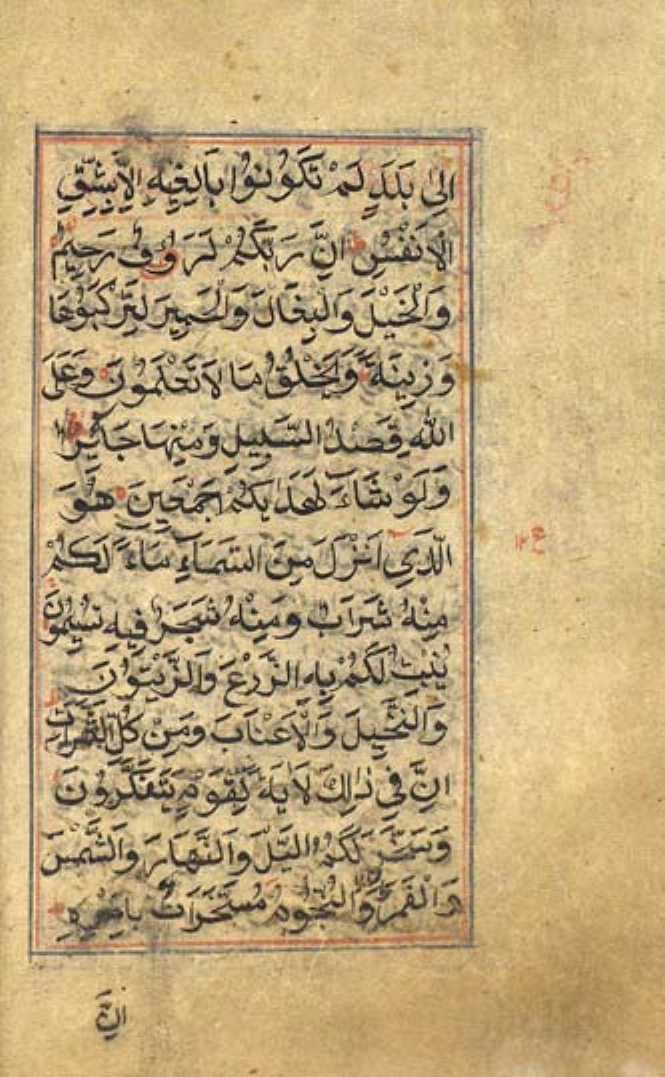 اِلىٰ بَلَدٍ لَمْ تَكُونُوا بَالِغِيهِ اِلَّا بِشِقِّ
الْاَنْفُسِ اِنَّ رَبَّكُمْ لَرَؤُفٌ رَحِيمٌ
وَالْخَيْلَ وَالْبِغَالَ وَالْحَمِيرَ لِتَرْكَبُوهَا
وَزِينَةً وَيَخْلُقُ مَا لَا تَعْلَمُونَ وَعَلَى
اللّٰهِ قَصْدُ السَّبِيلِ وَمِنْهَا جَائِرٌ
وَلَوْ شَاءَ لَهَدٰيكُمْ اَجْمَعِينَ هُوَ
الَّذِى اَنْزَلَ مِنَ السَّمَاءِ مَاءً لَكُمْ
مِنْهُ شَرَابٌ وَمِنْهُ شَجَرٌ فِيهِ تُسِيمُونَ
يُنْبِتُ لَكُمْ بِهِ الزَّرْعَ وَالزَّيْتُونَ
وَالنَّخِيلَ وَالْاَعْنَابَ وَمِنْ كُلِّ الثَّمَرَاتِ
اِنَّ فِى ذٰلِكَ لَاٰيَةً لِقَوْمٍ يَتَفَكَّرُونَ
وَسَخَّرَ لَكُمُ الَّيْلَ وَالنَّهَارَ وَالشَّمْسَ
وَالْقَمَرَ وَالنُّجُومُ مُسَخَّرَاتٌ بِاَمْرِهِ
اِنَّ